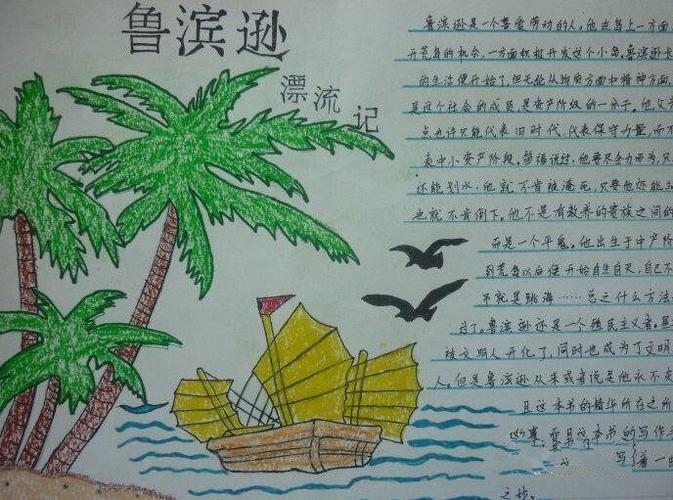 鲁滨逊
漂流记
鲁滨逊是一个喜爱劳动的人。他在岛上一方面
开荒岛的机会,一方面积极开发这个小岛,鲁滨逊
的生活便开始了,但无论从物质方面和精神方面,
是这个社会的成员,是资产阶级的一分子。他父
点也许只能代表旧时代,代表保守力量,而不
表中小资产阶段。笛福说过,他要尽全力而为,只
还能划水,他就不肯被淹死,只要他还能
也就不肯倒下。他不是有教养的贵族之间的
而是一个平。他出生于中产阶
到荒岛以后便开始自生自灭,自己不
吊就是跳海……总之什么方法
过了。鲁滨逊还是一个殖民主义者。
被文明人开化了,同时也成为了文明
人。但是鲁滨逊从来或者说是他永不
且这本书的精华所在之所
故事,而且这本书的写作
写着一
之妙。